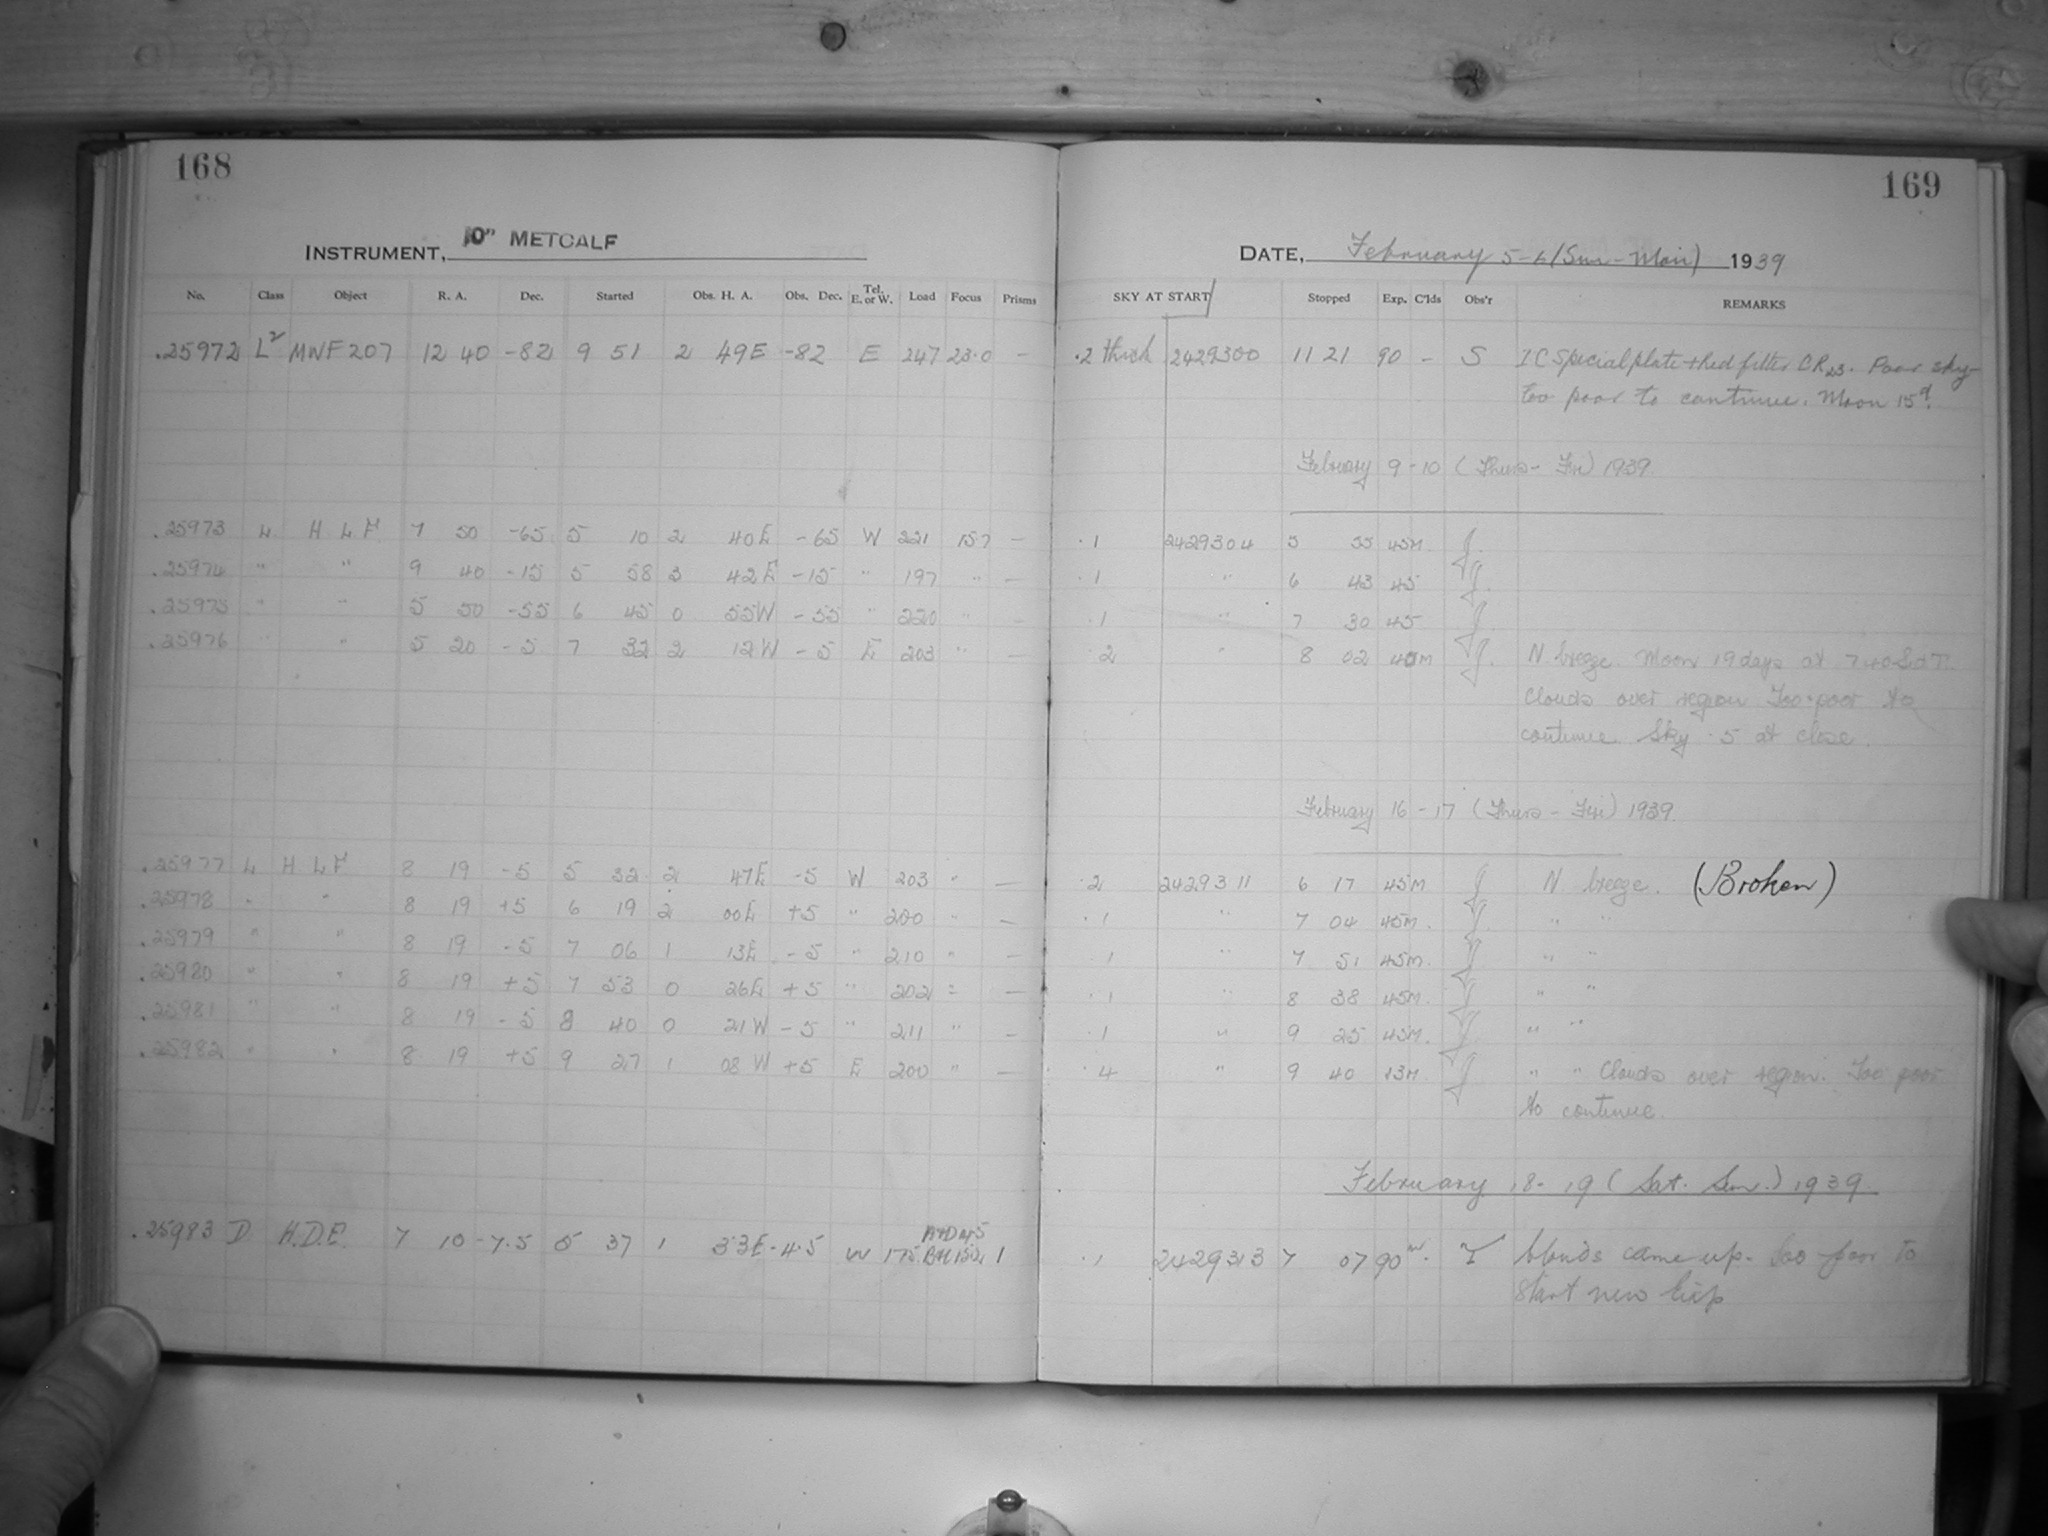 168
169
INSTRUMENT, 10" METCALF
DATE, February 5-6 (Sun-Mon) 1939
No. Class Object R. A. Dec. Started Obs. H. A. Obs. Dec. Tel. E. or W. Load Focus Prisms SKY AT START Stopped Exp. C'lds Obs'r REMARKS
.25972 L² MWF 207 12 40 -82 9 51 2 49E -82 E 247 23.0 - .2 thick 2429300 11 21 90 - S IC Special plate + Red filter CR. Poor sky-
too poor to continue. Moon 15d.
February 9-10 (Thurs-Fri) 1939.
.25973 L H L F 7 50 -65 5 10 2 40E -65 W 221 157 - .1 2429304 5 55 45M J.
.25974 " " 9 40 -15 5 58 3 42E -15 " 197 " - .1 " 6 43 45 J.
.25975 " " 5 50 -55 6 45 0 55W -55 " 220 " - .1 " 7 30 45 J.
.25976 " " 5 20 -5 7 32 2 12W -5 E 203 " - .2 " 8 02 M J. N breeze. Moon 19 days at 7 40
Clouds over region Too poor to
continue. Sky .5 at close.
February 16-17 (Thurs-Fri) 1939.
.25977 L H L F 8 19 -5 5 32 2 47E -5 W 203 " - .2 2429311 6 17 45M J N breeze. (Broken)
.25978 " " 8 19 +5 6 19 2 00E +5 " 200 " - .1 " 7 04 45M. J. " "
.25979 " " 8 19 -5 7 06 1 13E -5 " 210 " - .1 " 7 51 45M. J " "
.25980 " " 8 19 +5 7 53 0 26E +5 " 202 " - .1 " 8 38 45M. J " "
.25981 " " 8 19 -5 8 40 0 21W -5 " 211 " - .1 " 9 25 45M. J " "
.25982 " " 8 19 +5 9 27 1 08 W +5 E 200 " - .4 " 9 40 13M. J " " Clouds over region. Too poor
to continue.
February 18-19 (Sat. Sun.) 1939.
.25983 D H.D.E. 7 10 -7.5 5 37 1 33E -4.5 W 175 1 .1 2429313 7 07 90m. T Clouds came up. Too poor to
start new exp